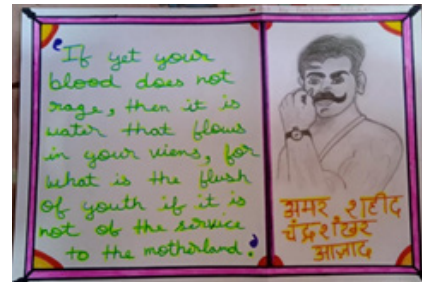 "If yet your
blood does not
rage, then it is
water that flows
in your viens, for
what is the flush
of youth if it is
not of the service
to the motherland."
अमर शहीद
चंद्रशेखर
आज़ाद